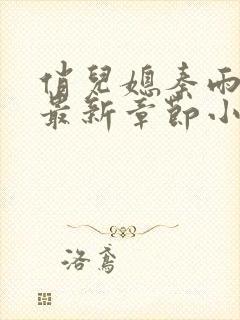 俏兒媳秦雨
最新章節小
洛鳶